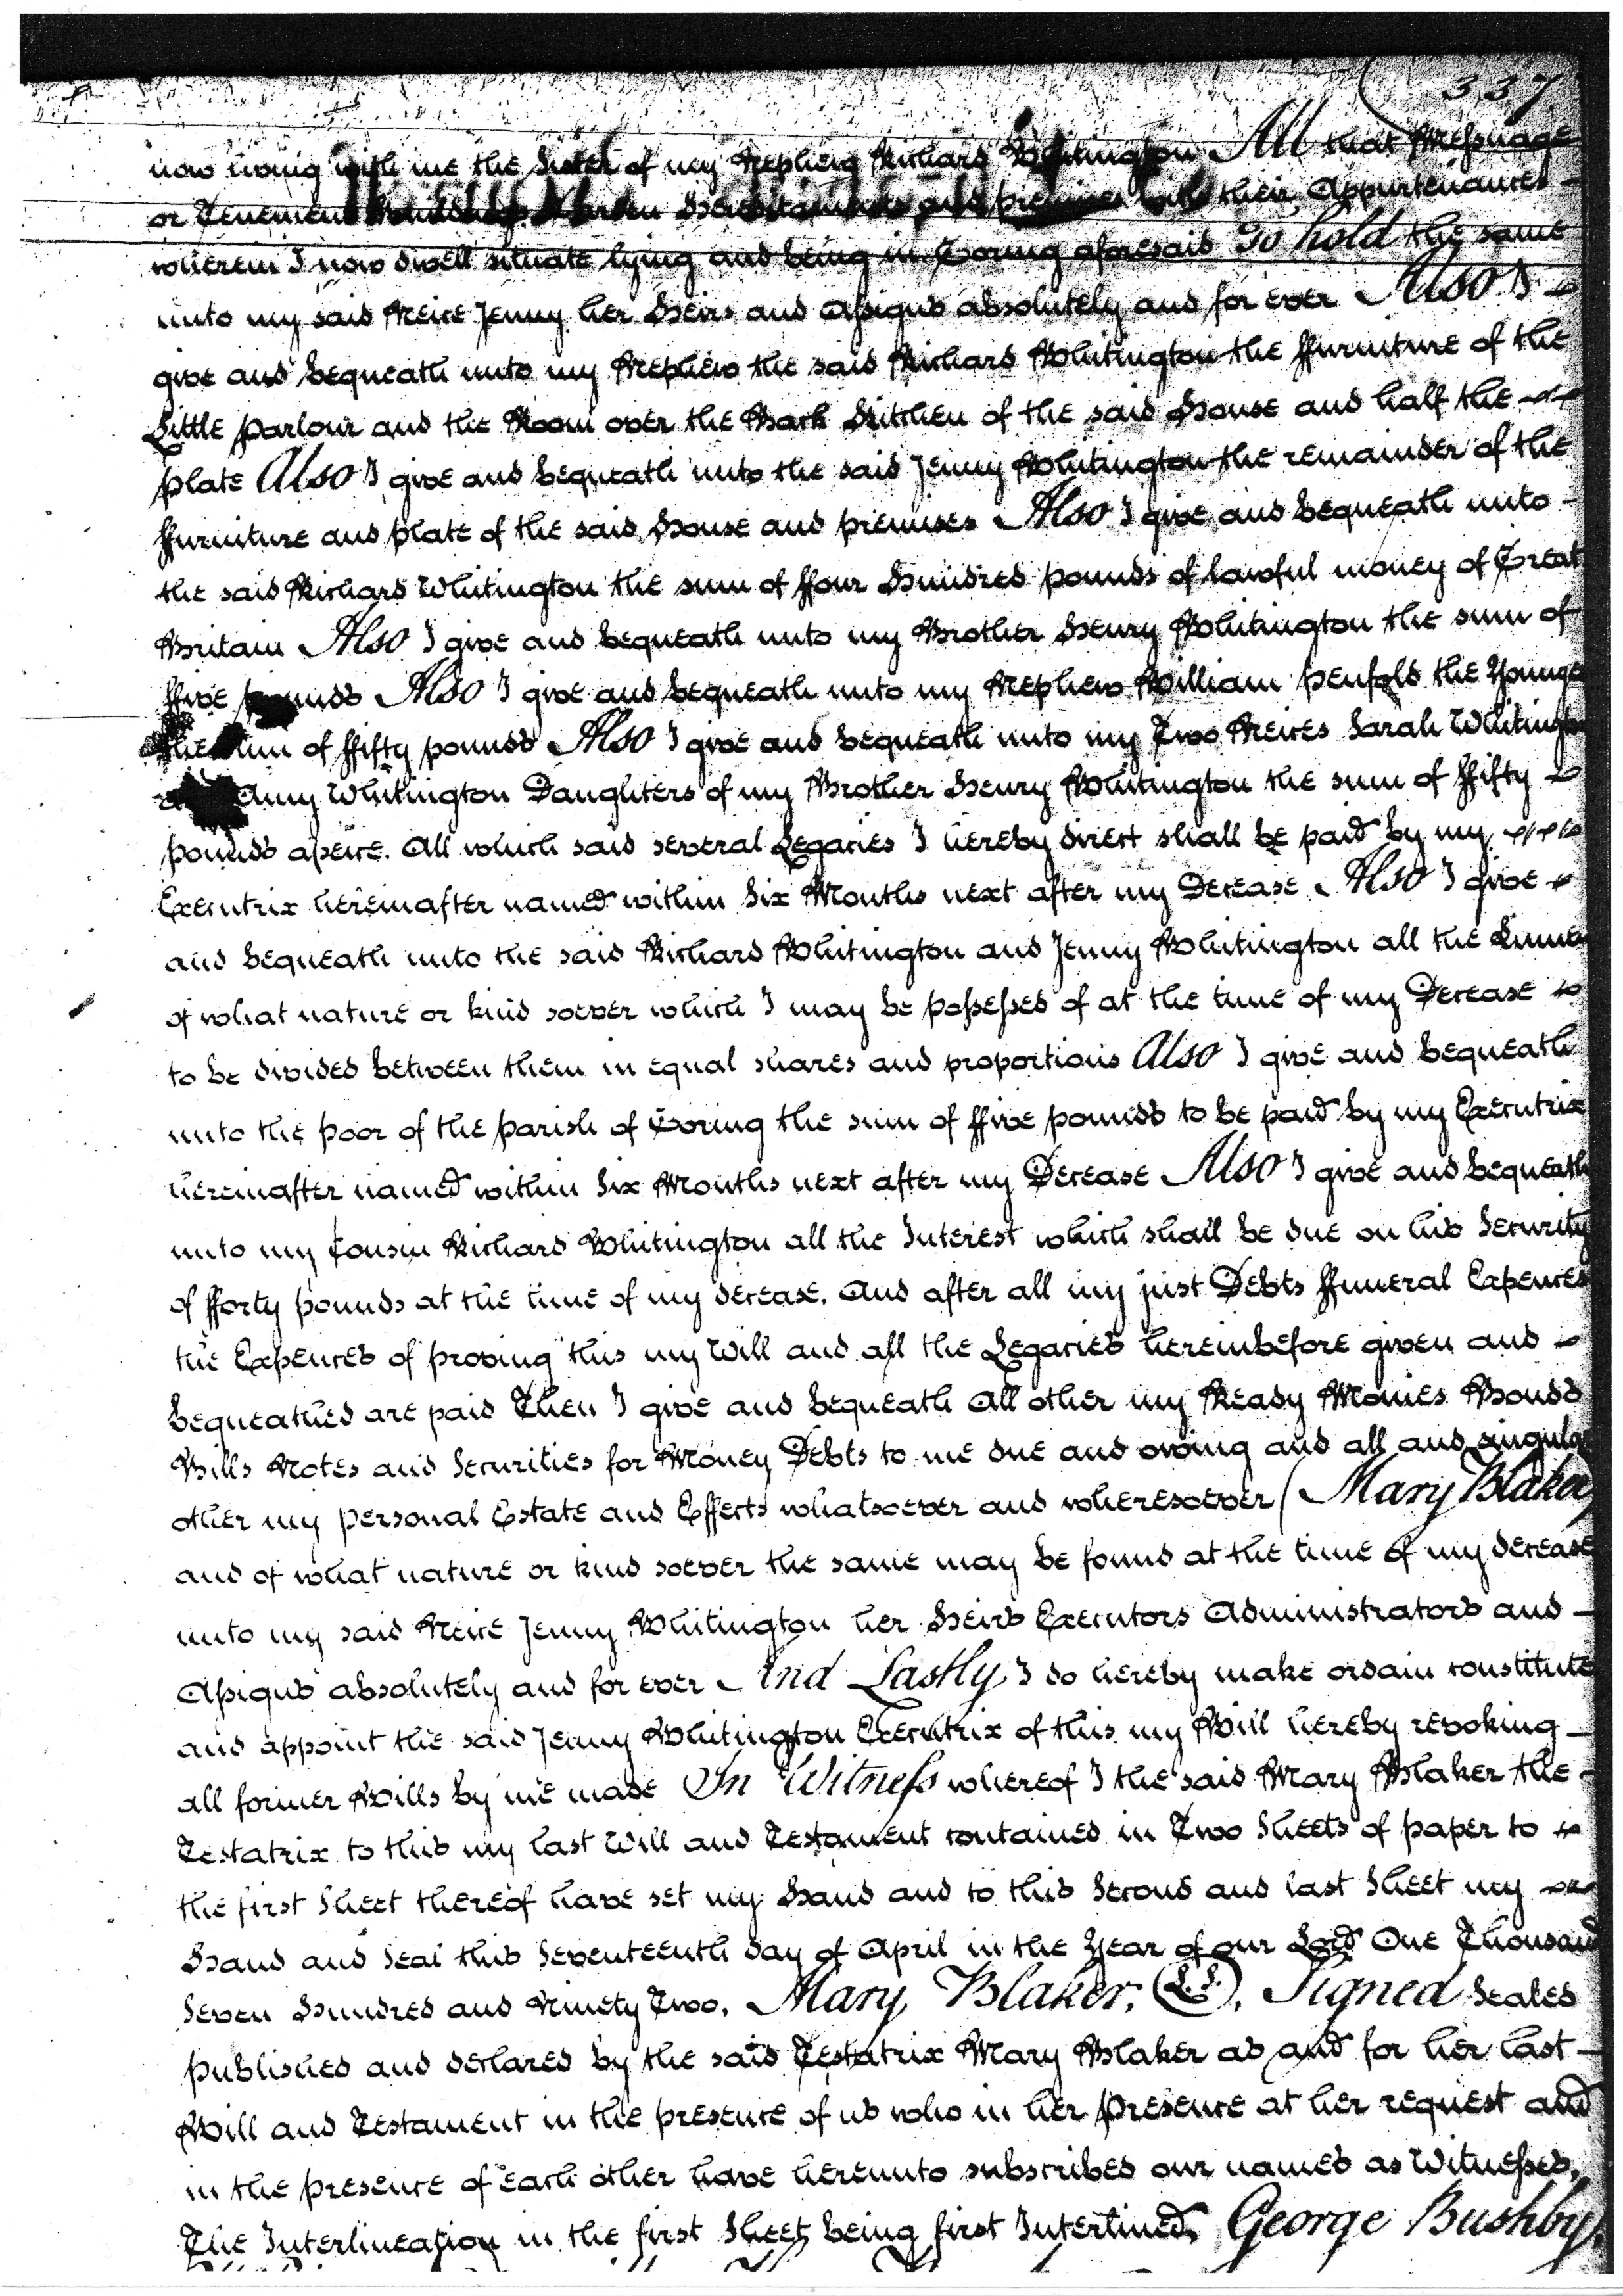 337
now living with me the Sister of my Nephew Richard Whitington All that Messuage
or Tenement Buildings Garden Hereditaments and premises with their Appurtenances
wherein I now dwell situate lying and being in Goring aforesaid To hold the same
unto my said Neice Jenny her Heirs and Assigns absolutely and for ever Also I
give and bequeath unto my Nephew the said Richard Whitington the ffurniture of the
Little parlour and the Room over the Back Kitchen of the said House and half the
plate Also I give and bequeath unto the said Jenny Whitington the remainder of the
ffurniture and plate of the said House and premises Also I give and bequeath unto
the said Richard Whitington the sum of ffour Hundred pounds of lawful money of Great
Britain Also I give and bequeath unto my Brother Henry Whitington the sum of
ffive pounds Also I give and bequeath unto my Nephew William Penfold the Younger
the sum of ffifty pounds Also I give and bequeath unto my Two Neices Sarah Whitington
Amy Whitington Daughters of my Brother Henry Whitington the sum of ffifty
pounds apeice. All which said several Legacies I hereby direct shall be paid by my
Executrix hereinafter named within Six Months next after my Decease Also I give
and bequeath unto the said Richard Whitington and Jenny Whitington all the Linnen
of what nature or kind soever which I may be possessed of at the time of my Decease
to be divided between them in equal shares and proportions Also I give and bequeath
unto the poor of the parish of Goring the sum of ffive pounds to be paid by my Executrix
hereinafter named within Six Months next after my Decease Also I give and bequeath
unto my Cousin Richard Whitington all the Interest which shall be due on his Security
of fforty pounds at the time of my decease. And after all my just Debts ffuneral Expences
the Expences of proving this my Will and all the Legacies hereinbefore given and
bequeathed are paid Then I give and bequeath All other my Ready Monies Bonds
Bills Notes and Securities for Money Debts to me due and owing and all and singular
other my personal Estate and Effects whatsoever and wheresoever (Mary Blaker)
and of what nature or kind soever the same may be found at the time of my decease
unto my said Neice Jenny Whitington her Heirs Executors Administrators and
Assigns absolutely and for ever And Lastly I do hereby make ordain constitute
and appoint the said Jenny Whitington Executrix of this my Will hereby revoking
all former Wills by me made In Witness whereof I the said Mary Blaker the
Testatrix to this my last Will and Testament contained in Two Sheets of paper to
the first Sheet thereof have set my Hand and to this Second and last Sheet my
Hand and Seal this Seventeenth day of April in the Year of our Lord One Thousand
Seven Hundred and Ninety Two. Mary Blaker. (L.S.). Signed Sealed
published and declared by the said Testatrix Mary Blaker as and for her last
Will and Testament in the presence of us who in her presence at her request and
in the presence of each other have hereunto subscribed our names as Witnesses,
The Interlineation in the first Sheet being first Interlined, George Bushby,